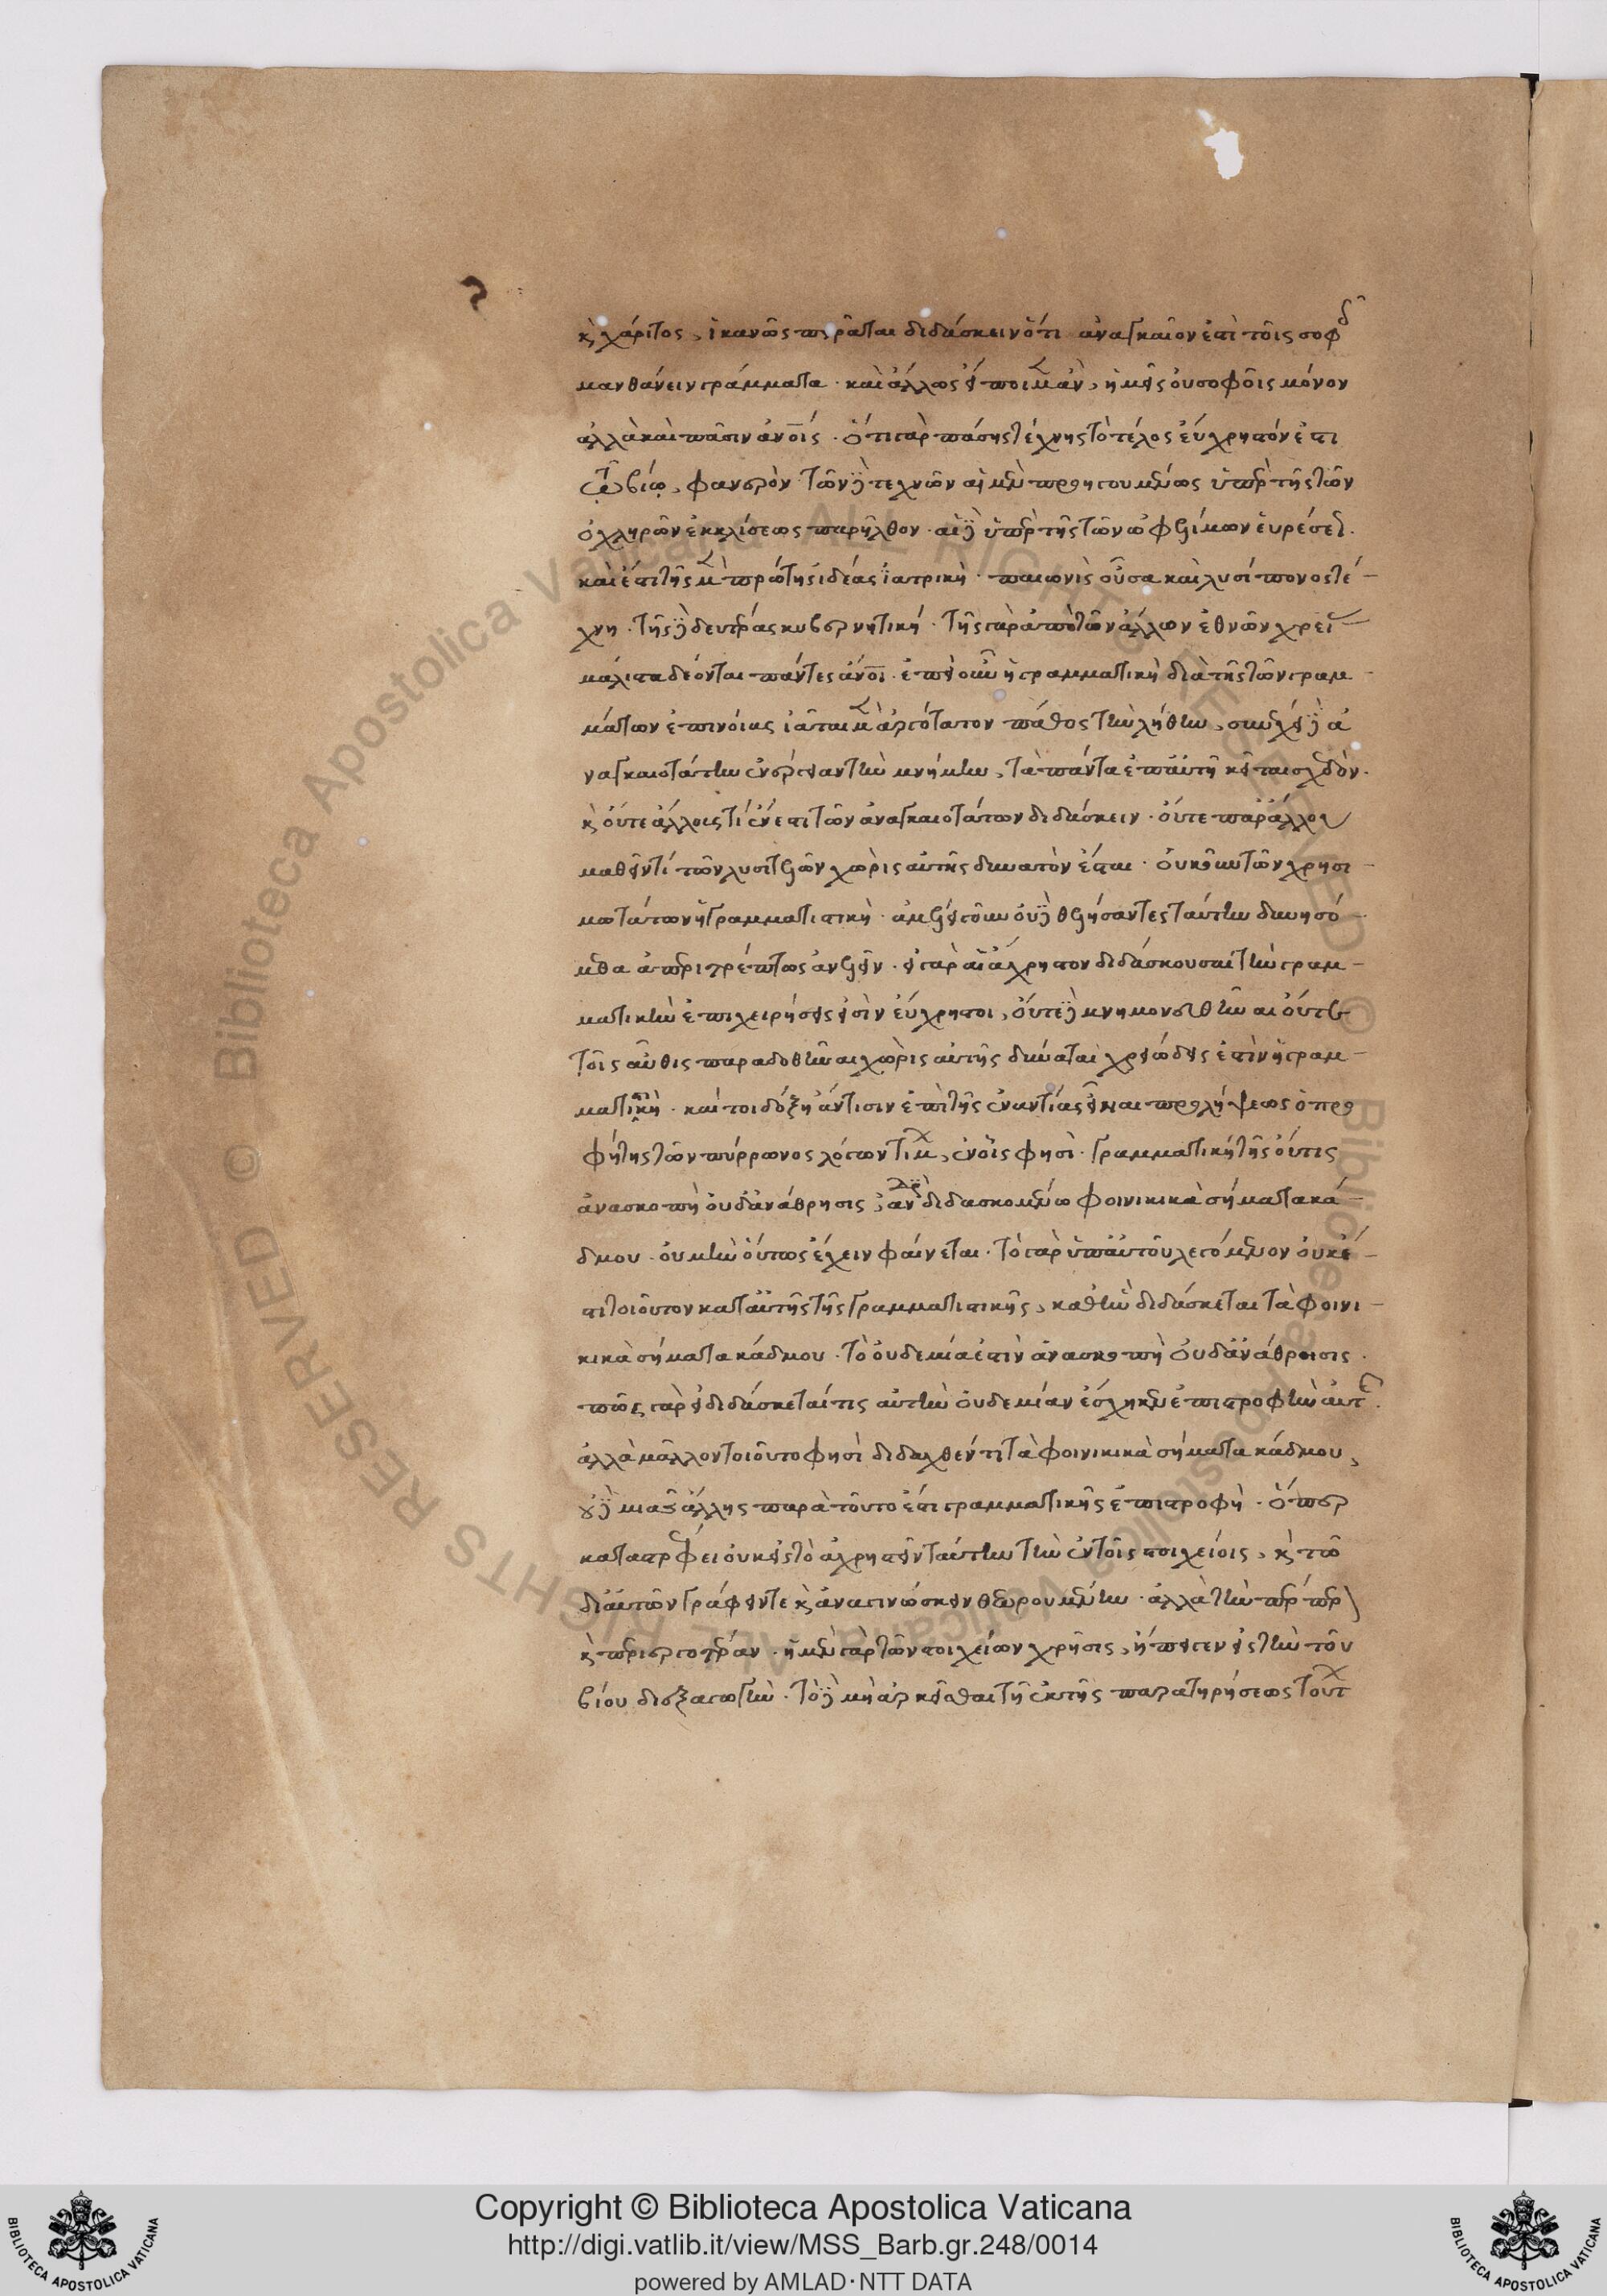 κὶ χάριτος, ἱκανῶς πειρᾶται διδάσκειν ὅτι ἀναγκαῖον ἐστὶ τοῖς σοφοῖς
μανθάνειν γράμματα · καὶ ἄλλως εἴποιμεν ἂν, ἡμεῖς οὐ σοφοῖς μόνον
ἀλλὰ καὶ πᾶσιν ἀνοις · ὅτι γὰρ πάσης τέχνης τὸ τέλος εὔχρηστόν ἐστι
τῷ βίῳ, φανερὸν · τῶν δὲ τεχνῶν αἱ μὲν προηγουμένως ὑπὲρ τῆς τῶν
ὀχληρῶν ἐκκλίσεως παρῆλθον · αἱ δὲ ὑπὲρ τῆς τῶν ὠφελίμων εὑρέσεως ·
καὶ ἔστι τῆς μὲν πρώτης ἰδέας ἰατρικὴ · παιωνὶς οὖσα καὶ λυσίπονος τέ-
χνη · τῆς δὲ δευτέρας κυβερνητική · τῆς γὰρ ἀπὸ τῶν ἄλλων ἐθνῶν χρείας
μάλιστα δέονται πάντες ἄνοι · ἐπεὶ οὖν ἡ γραμματικὴ διὰ τῆς τῶν γραμ-
μάτων ἐπινοίας ἰᾶται μὲν ἀργότατον πάθος τὴν λήθην, συνέχει δὲ ἀ
ναγκαιοτάτην ἐνέργειαν τὴν μνήμην, τὰ πάντα ἐπ' αὐτῇ κεῖται σχεδὸν ·
κὶ οὔτε ἄλλοις τί ἔνεστι τῶν ἀναγκαιοτάτων διδάσκειν · οὔτε παρ' ἄλλου
μαθεῖν τί τῶν λυσιτελῶν χωρὶς αὐτῆς δυνατὸν ἔσται · οὐκοῦν τῶν χρησι-
μωτάτων ἡ γραμματιστικὴ · ἀμέλει γοῦν οὐδὲ θελήσαντες ταύτην δυνησό-
μεθα ἀπεριτρέπτως ἀνελεῖν · εἰ γὰρ αἱ ἄχρηστον διδάσκουσαι τὴν γραμ-
ματικὴν ἐπιχειρήσεις εἰσὶν εὔχρηστοι, οὔτε δὲ μνημονευθῆναι οὔτε
τοῖς αὖθις παραδοθῆναι χωρὶς αὐτῆς δύναται, χρειώδης ἐστὶν ἡ γραμ-
ματικὴ · καίτοι δόξῃ ἄν τισιν ἐπὶ τῆς ἐναντίας εἶναι προλήψεως ὁ προ
φήτης τῶν πύρρωνος λόγων τίμ, ἐν οἷς φησὶ · γραμματικὴ τῆς οὔτις
ἀνασκοπὴ οὐδ' ἀνάθρησις ἀνδρὶ διδασκομένω φοινικικὰ σήματα κά-
δμου · οὐ μὴν οὕτως ἔχειν φαίνεται · τὸ γὰρ ὑπ' αὐτοῦ λεγόμενον οὐκ ἔ-
στι τοιοῦτον κατ' αὐτῆς τῆς γραμματιστικῆς, καθ' ἣν διδάσκεται τὰ φοινι-
κικὰ σήματα κάδμου · τὸ οὐδεμία ἐστὶν ἀνασκοπὴ οὐδ' ἀνάθρησις ·
πῶς γὰρ εἰ διδάσκεταί τις αὐτὴν οὐδεμίαν ἔσχηκεν ἐπιστροφὴν αὐτῆς ·
ἀλλὰ μᾶλλον τοιοῦτο φησὶ διδαχθέντι τὰ φοινικικὰ σήματα κάδμου,
οὐδεμιᾶς ἄλλης παρὰ τοῦτο ἔστι γραμματικῆς ἐπιστροφὴ · ὅπερ
καταστρέφει οὐκ εἰς τὸ ἀχρηστεῖν ταύτην τὴν ἐν τοῖς στοιχείοις, κὶ τῷ
δι' αὐτῶν γράφειν τε κὶ ἀναγινώσκειν θεωρουμένην · ἀλλὰ τὴν πέρπερ
κὶ περιεργοτέραν · ἡ μὲν γὰρ τῶν στοιχείων χρῆσις, ἤπειγεν εἰς τὴν τοῦ
βίου διεξαγωγὴν · τὸ δὲ μὴ ἀρκεῖσθαι τῇ ἐκ τῆς παρατηρήσεως τούτ
Copyright © Biblioteca Apostolica Vaticana
http://digi.vatlib.it/view/MSS_Barb.gr.248/0014
powered by AMLAD·NTT DATA